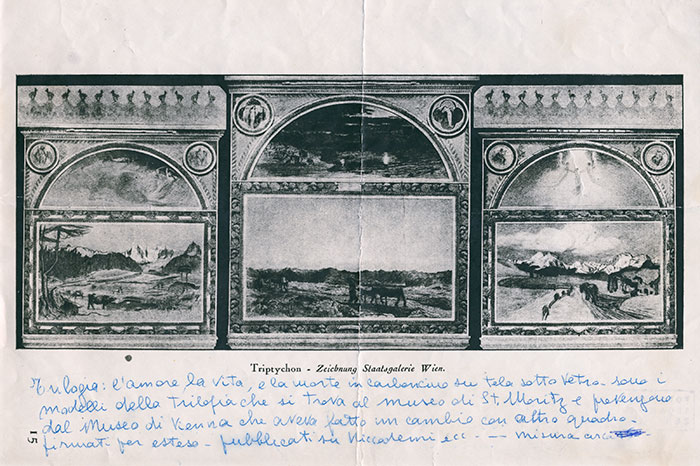 Triptychon - Zeichnung Staatsgalerie Wien.
Trilogia: l'amore la vita, e la morte in carboncino su tela sotto vetro. sono i
modelli della Trilogia che si trova al museo di St. Moritz e pervengono
dal Museo di Vienna che aveva fatto un cambio con altro quadro.
firmati per esteso. pubblicati su Niccodemi ecc. -- misura
15